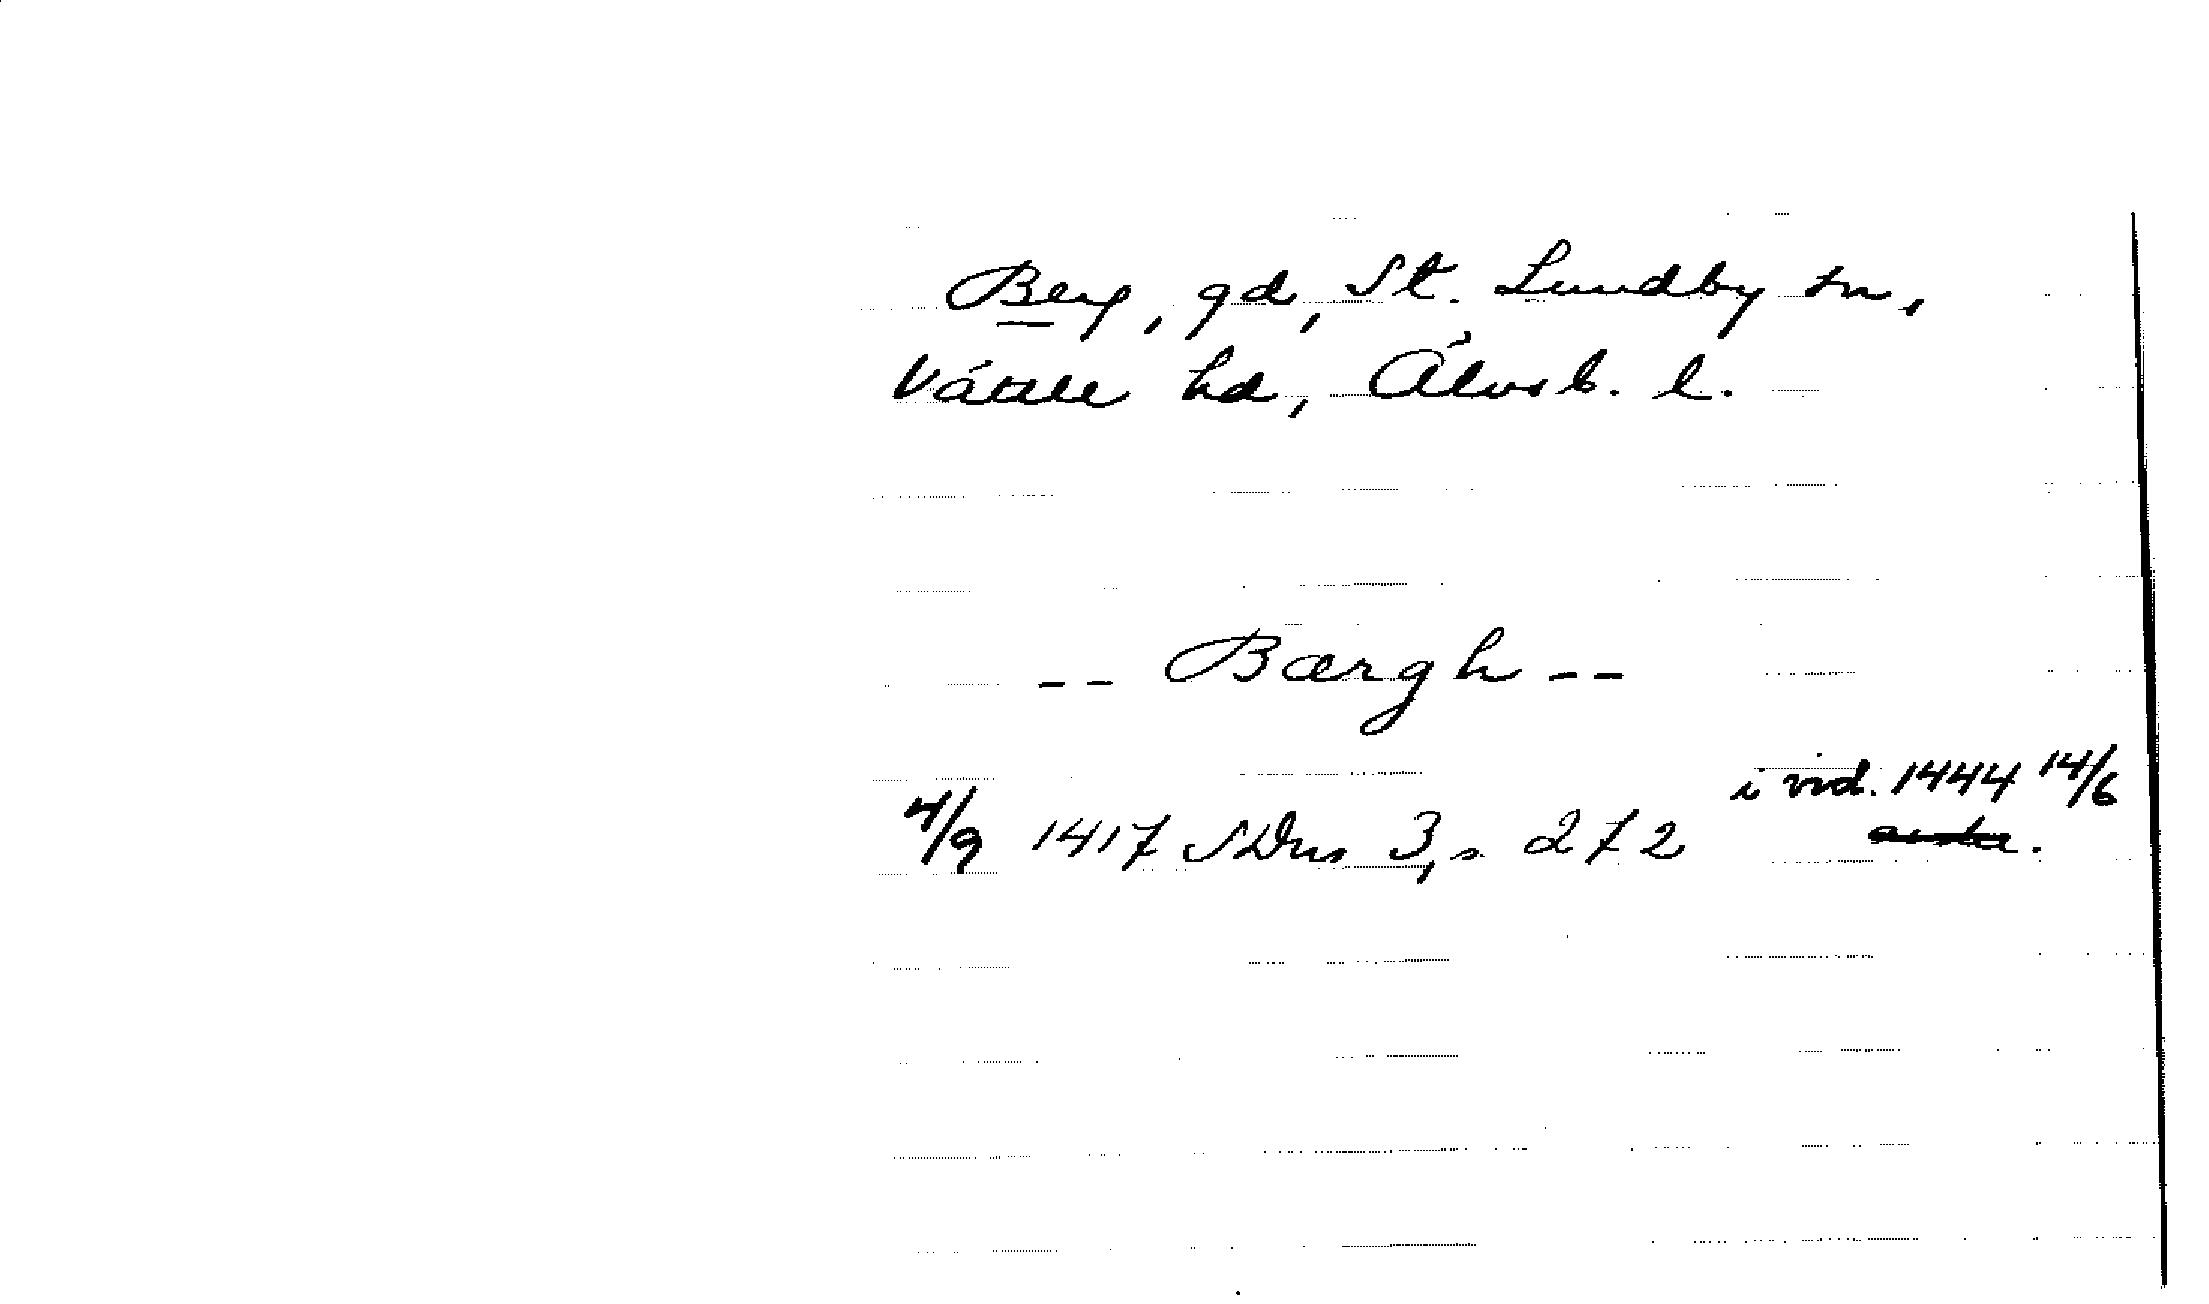 Berg, gd, St. Lundby sn,
Vättle hd, Älvsb. l.
-- Bærgh --
i vid. 1444 14/6
4/9 1417 SDns 3, s 272